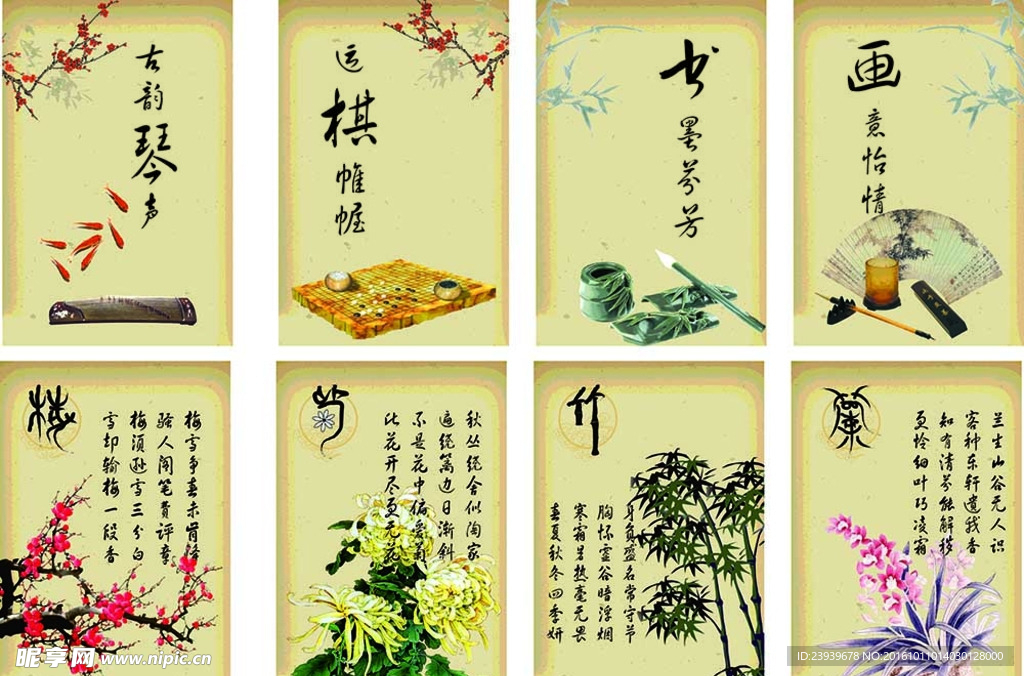 古韵琴声
运棋帷幄
书墨芬芳
画意怡情
梅
梅雪争春未肯降
骚人阁笔费评章
梅须逊雪三分白
雪却输梅一段香
菊
秋丛绕舍似陶家
遍绕篱边日渐斜
不是花中偏爱菊
此花开尽更无花
竹
身负盛名常守节
胸怀虚谷暗浮烟
寒霜呈热毫无畏
春夏秋冬四季妍
兰生山谷无人识
客种东轩遗我香
知有清芬能解秽
更怜细叶巧凌霜
昵享网 www.nipic.cn
ID:23939678 NO:20161011014030128000